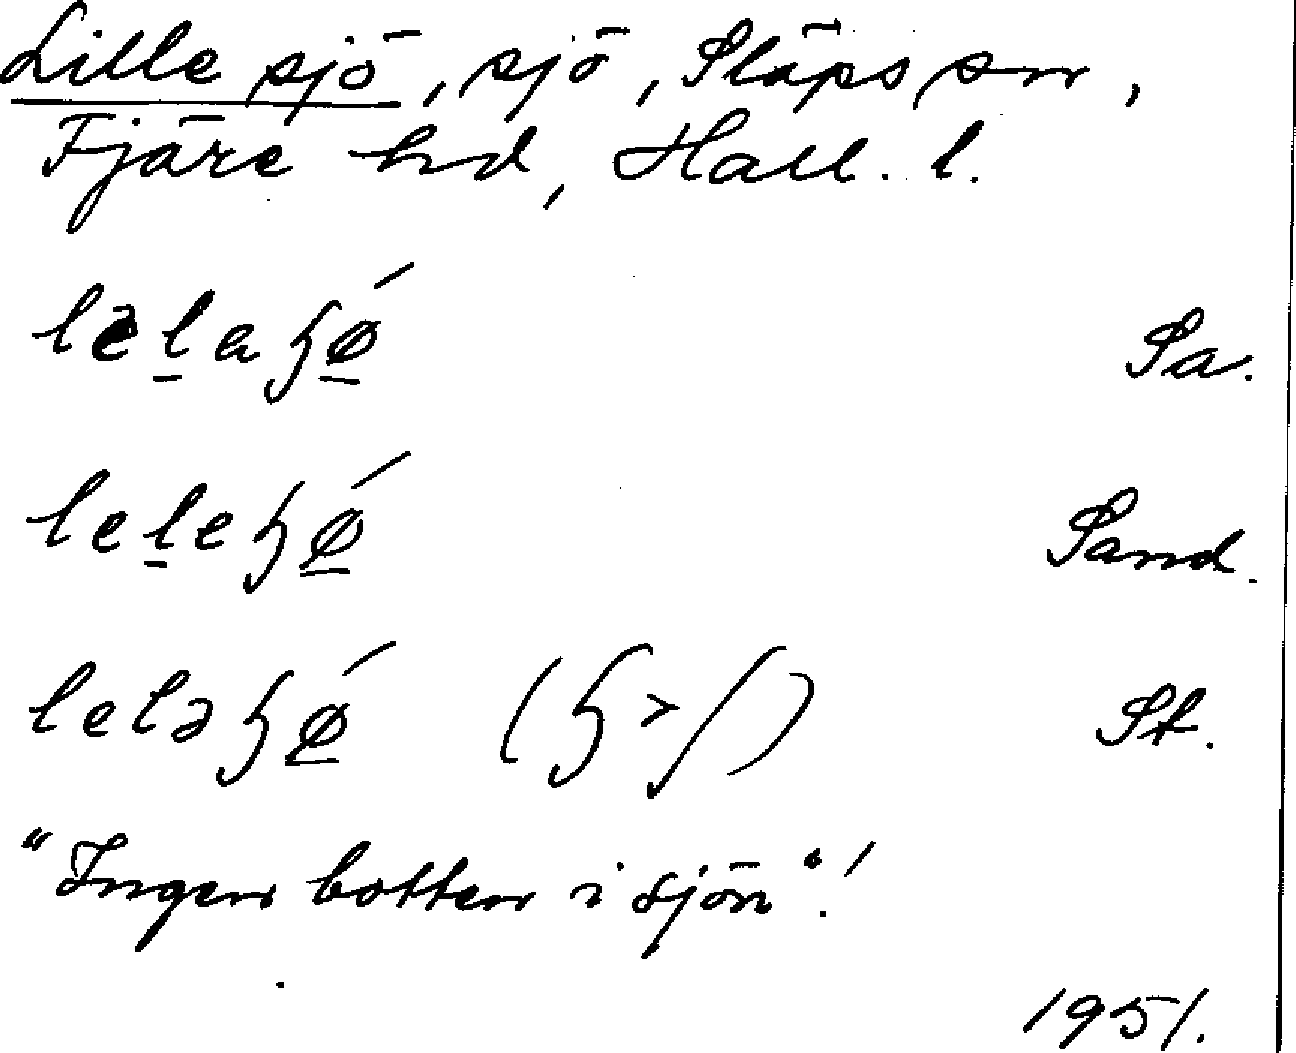 Lille sjö, sjö, Släps sn,
Fjäre hd, Hall. l.
lelaɧǿ Sa.
leleɧǿ Sand.
leləɧǿ (ɧ > ʃ) St.
"Ingen botten i sjön"!
1951.